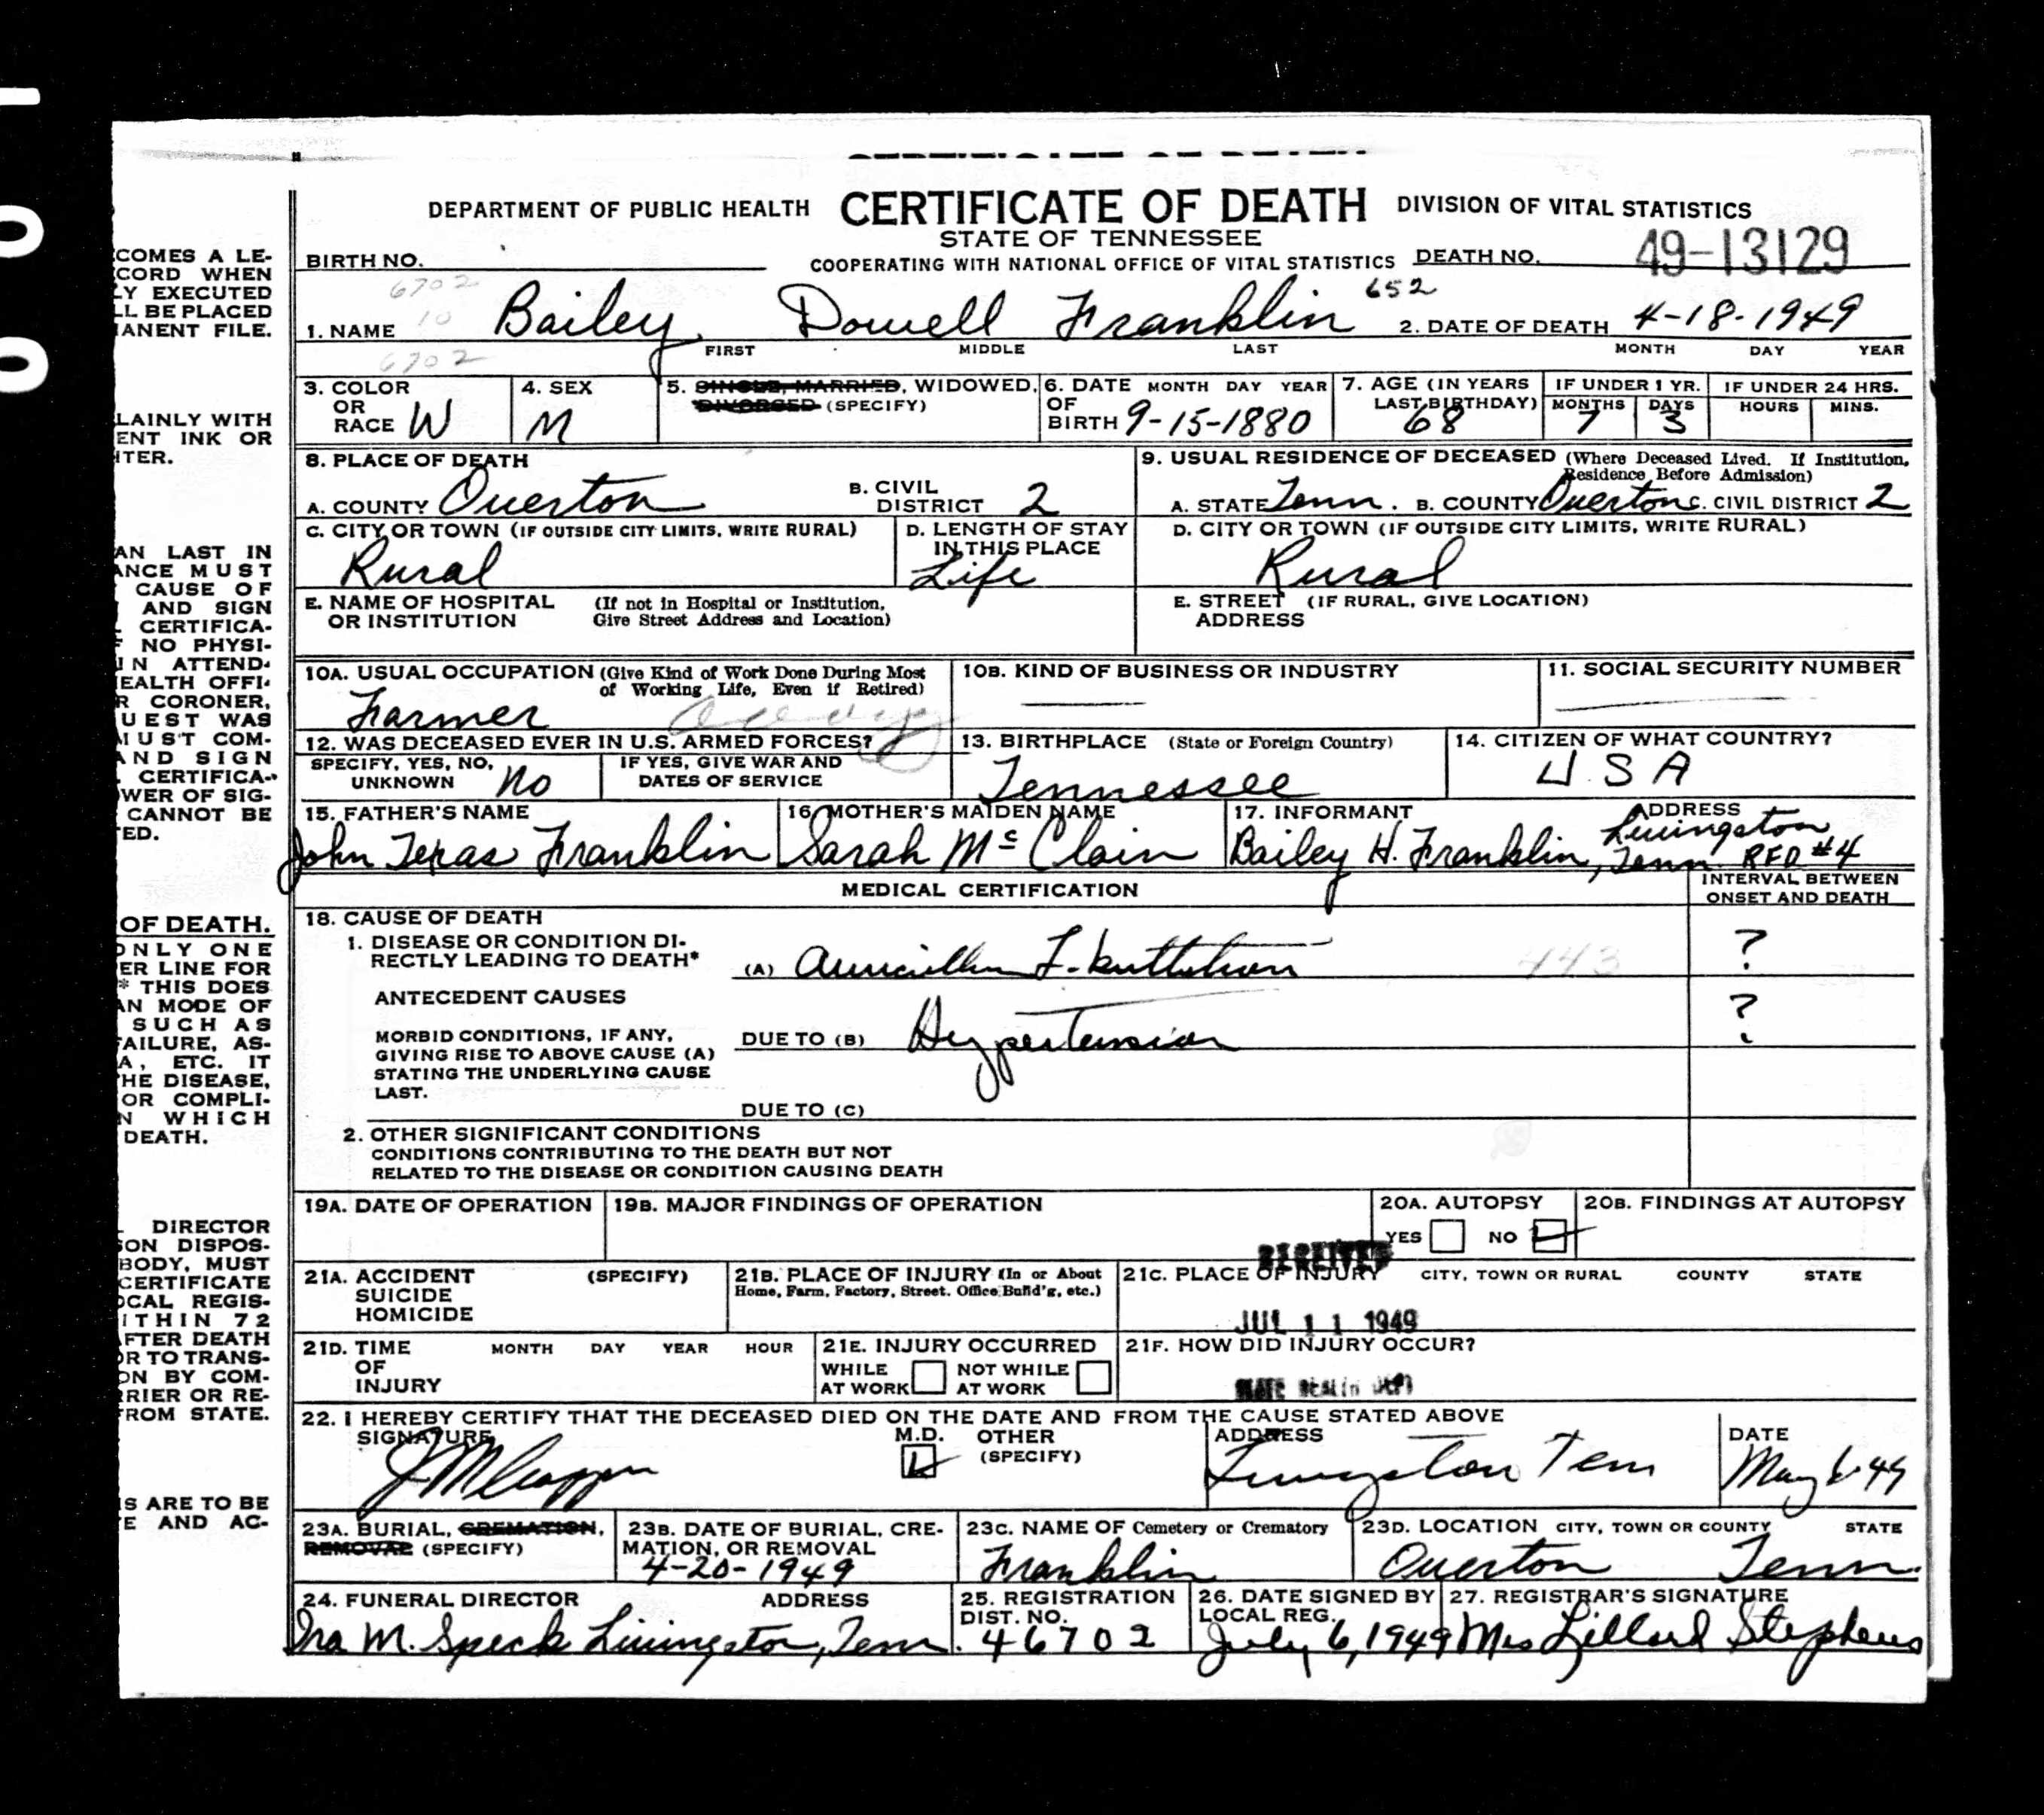 DEPARTMENT OF PUBLIC HEALTH CERTIFICATE OF DEATH DIVISION OF VITAL STATISTICS
STATE OF TENNESSEE
BIRTH NO. COOPERATING WITH NATIONAL OFFICE OF VITAL STATISTICS DEATH NO. 49-13129
6702 652
10
1. NAME Bailey Dowell Franklin 2. DATE OF DEATH 4-18-1949
6702 FIRST MIDDLE LAST MONTH DAY YEAR
3. COLOR OR RACE W
4. SEX M
5. SINGLE, MARRIED, WIDOWED, DIVORCED (SPECIFY)
6. DATE OF BIRTH MONTH DAY YEAR 9-15-1880
7. AGE (IN YEARS LAST BIRTHDAY) 68
IF UNDER 1 YR. MONTHS 7 DAYS 3
IF UNDER 24 HRS. HOURS MINS.
8. PLACE OF DEATH
A. COUNTY Overton B. CIVIL DISTRICT 2
C. CITY OR TOWN (IF OUTSIDE CITY LIMITS, WRITE RURAL) Rural
D. LENGTH OF STAY IN THIS PLACE Life
E. NAME OF HOSPITAL OR INSTITUTION (If not in Hospital or Institution, Give Street Address and Location)
9. USUAL RESIDENCE OF DECEASED (Where Deceased Lived. If Institution, Residence Before Admission)
A. STATE Tenn. B. COUNTY Overton C. CIVIL DISTRICT 2
D. CITY OR TOWN (IF OUTSIDE CITY LIMITS, WRITE RURAL) Rural
E. STREET ADDRESS (IF RURAL, GIVE LOCATION)
10A. USUAL OCCUPATION (Give Kind of Work Done During Most of Working Life, Even if Retired) Farmer
10B. KIND OF BUSINESS OR INDUSTRY
11. SOCIAL SECURITY NUMBER
12. WAS DECEASED EVER IN U.S. ARMED FORCES?
SPECIFY, YES, NO, UNKNOWN No
IF YES, GIVE WAR AND DATES OF SERVICE
13. BIRTHPLACE (State or Foreign Country) Tennessee
14. CITIZEN OF WHAT COUNTRY? U.S.A
15. FATHER'S NAME John Texas Franklin
16. MOTHER'S MAIDEN NAME Sarah Mc Clain
17. INFORMANT Bailey H. Franklin, ADDRESS Livingston, Tenn. RFD #4
MEDICAL CERTIFICATION
INTERVAL BETWEEN ONSET AND DEATH
18. CAUSE OF DEATH
1. DISEASE OR CONDITION DIRECTLY LEADING TO DEATH* (A) 443 ?
ANTECEDENT CAUSES
MORBID CONDITIONS, IF ANY, GIVING RISE TO ABOVE CAUSE (A) STATING THE UNDERLYING CAUSE LAST.
DUE TO (B) Hypertension ?
DUE TO (C)
2. OTHER SIGNIFICANT CONDITIONS
CONDITIONS CONTRIBUTING TO THE DEATH BUT NOT
RELATED TO THE DISEASE OR CONDITION CAUSING DEATH
19A. DATE OF OPERATION 19B. MAJOR FINDINGS OF OPERATION
20A. AUTOPSY YES NO
20B. FINDINGS AT AUTOPSY
RECEIVED
21A. ACCIDENT SUICIDE HOMICIDE (SPECIFY)
21B. PLACE OF INJURY (In or About Home, Farm, Factory, Street, Office Build'g, etc.)
21C. PLACE OF INJURY CITY, TOWN OR RURAL COUNTY STATE
JUL 11 1949
21D. TIME OF INJURY MONTH DAY YEAR HOUR
21E. INJURY OCCURRED WHILE AT WORK NOT WHILE AT WORK
21F. HOW DID INJURY OCCUR?
STATE HEALTH DEPT
22. I HEREBY CERTIFY THAT THE DECEASED DIED ON THE DATE AND FROM THE CAUSE STATED ABOVE
SIGNATURE M.D. OTHER (SPECIFY)
ADDRESS Livingston Tenn
DATE May 6-49
23A. BURIAL, CREMATION, REMOVAL (SPECIFY)
23B. DATE OF BURIAL, CREMATION, OR REMOVAL 4-20-1949
23C. NAME OF Cemetery or Crematory Franklin
23D. LOCATION CITY, TOWN OR COUNTY STATE Overton Tenn.
24. FUNERAL DIRECTOR ADDRESS Ira M. Speck Livingston, Tenn.
25. REGISTRATION DIST. NO. 46702
26. DATE SIGNED BY LOCAL REG. July 6, 1949
27. REGISTRAR'S SIGNATURE Mrs Lillard Stephens
COMES A LE-
CORD WHEN
LY EXECUTED
LL BE PLACED
MANENT FILE.
LAINLY WITH
ENT INK OR
ITER.
AN LAST IN
ANCE MUST
CAUSE OF
AND SIGN
CERTIFICA-
NO PHYSI-
IN ATTEND-
EALTH OFFI-
R CORONER,
UEST WAS
MUST COM-
AND SIGN
CERTIFICA-
WER OF SIG-
CANNOT BE
TED.
OF DEATH.
ONLY ONE
ER LINE FOR
* THIS DOES
AN MODE OF
SUCH AS
FAILURE, AS-
A, ETC. IT
THE DISEASE,
OR COMPLI-
N WHICH
DEATH.
DIRECTOR
SON DISPOS-
BODY, MUST
CERTIFICATE
OCAL REGIS-
ITHIN 72
AFTER DEATH
OR TO TRANS-
ON BY COM-
RRIER OR RE-
FROM STATE.
S ARE TO BE
E AND AC-